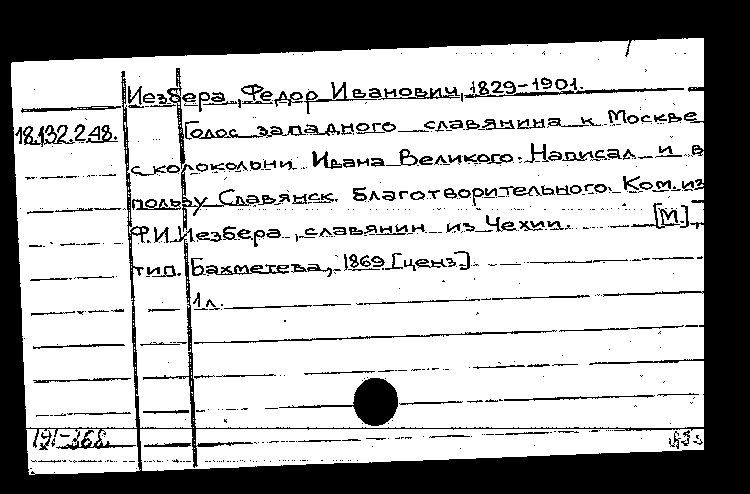 Иезбера, Федор Иванович, 1829-1901.
18.132.2.48. Голос западного славянина к Москве
с колокольни Ивана Великого. Написал и в
пользу Славянск. Благотворительного. Ком. из
Ф.И.Иезбера, славянин из Чехии. [М.],
тип. Бахметева, 1869 [ценз.]
1 л.
191-368.